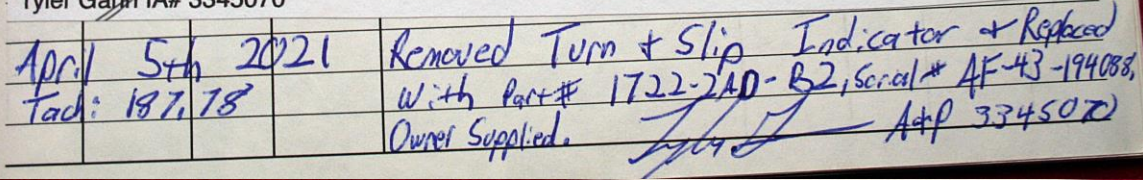 Tyler Gann IA# 3345070
April 5th 2021 Removed Turn & Slip Indicator & Replaced
Tach: 187.78 With Part# 1722-2AD-B2, Serial# AF-43-194088,
Owner Supplied. A&P 3345070